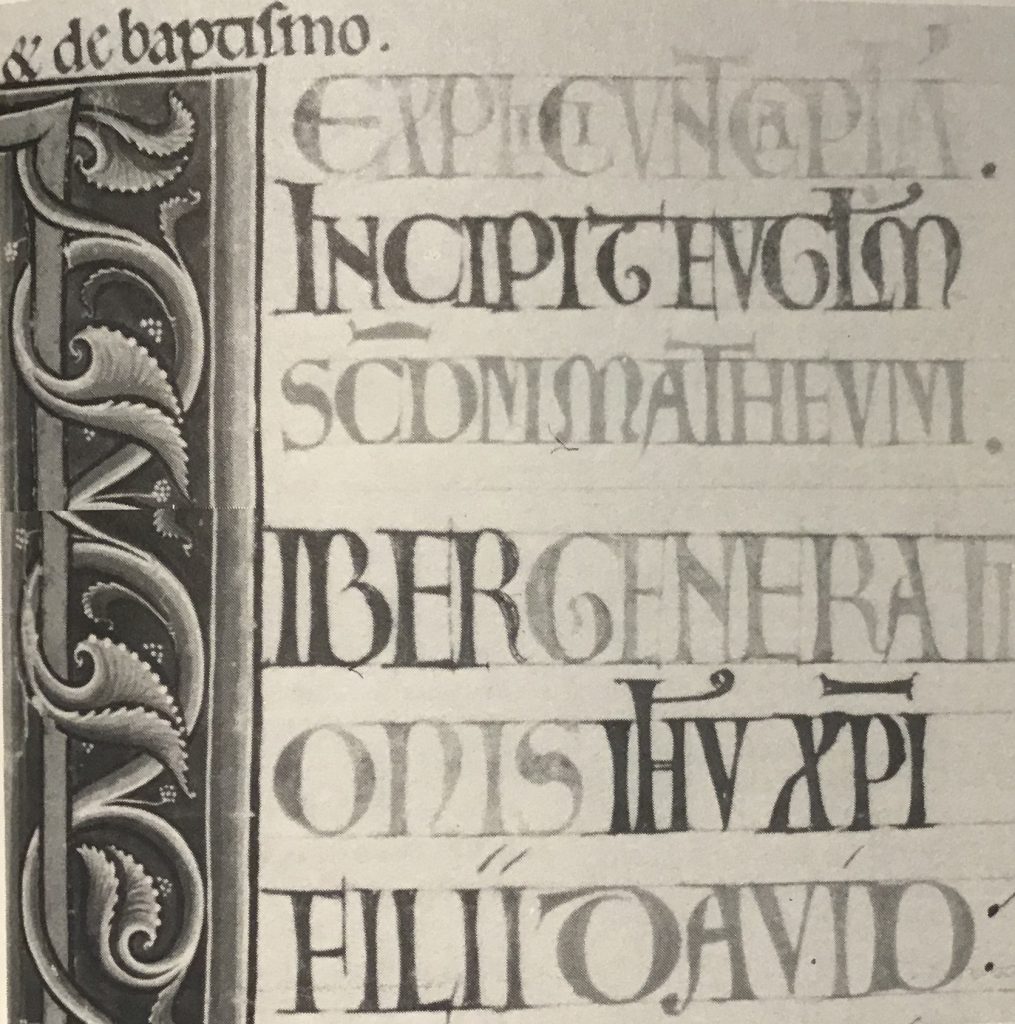 & de baptismo.
EXPLICIUNT CAPLA.
INCIPIT EVGLM
SCDM MATHEUM.
IBER GENERATI
ONIS IHU XPI
FILII DAVID.